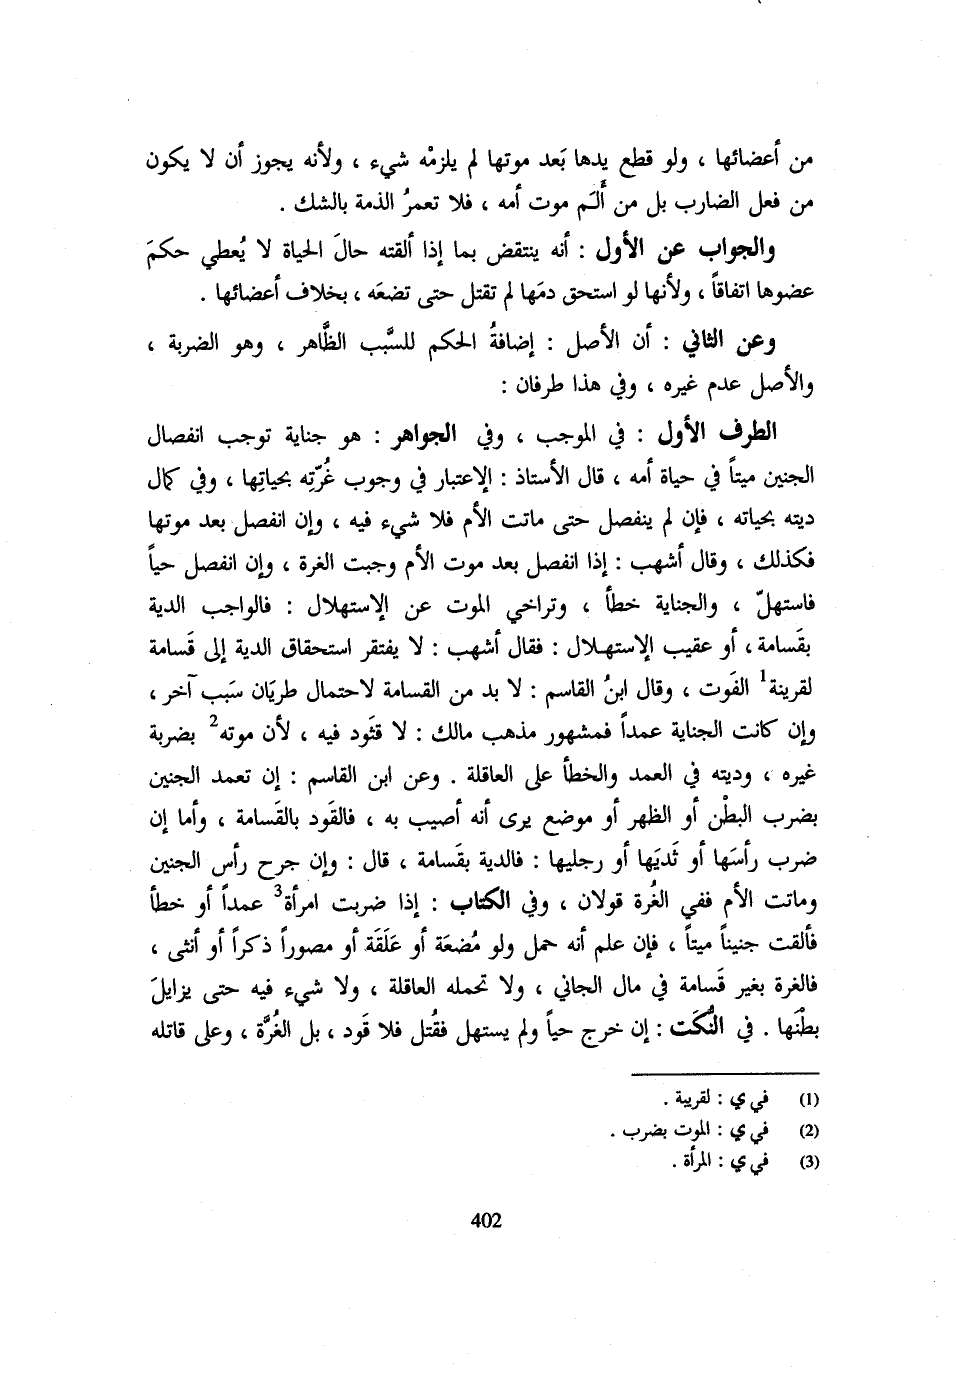 من أعضائها ، ولو قطع يدها بَعد موتها لم يلزمْه شيء ، ولأنه يجوز أن لا يكون
من فعل الضارب بل من أَلَم موت أمه ، فلا تعمرُ الذمة بالشك .
والجواب عن الأول : أنه ينتقض بما إذا ألقته حالَ الحياة لا يُعطي حكمَ
عضوها اتفاقاً ، ولأنها لو استحق دمَها لم تقتل حتى تضعَه ، بخلاف أعضائها .
وعن الثاني : أن الأصل : إضافةُ الحكم للسَّبب الظَّاهر ، وهو الضربة ،
والأصل عدم غيره ، وفي هذا طرفان :
الطرف الأول : في الموجب ، وفي الجواهر : هو جناية توجب انفصال
الجنين ميتاً في حياة أمه ، قال الأستاذ : الإعتبار في وجوب غُرّتِه بحياتِها ، وفي كمال
ديته بحياته ، فإن لم ينفصل حتى ماتت الأم فلا شيء فيه ، وإن انفصل بعد موتها
فكذلك ، وقال أشهب : إذا انفصل بعد موت الأم وجبت الغرة ، وإن انفصل حياً
فاستهلّ ، والجناية خطأ ، وتراخي الموت عن الإستهلال : فالواجب الدية
بقَسامة ، أو عقيب الإستهلال : فقال أشهب : لا يفتقر استحقاق الدية إلى قَسامة
لقرينة1 الفَوت ، وقال ابنُ القاسم : لا بد من القسامة لاحتمال طريَان سَبب آخر ،
وإن كانت الجناية عمداً فمشهور مذهب مالك : لا قَود فيه ، لأن موته2 بضربة
غيره ، وديته في العمد والخطأ على العاقلة . وعن ابن القاسم : إن تعمد الجنين
بضرب البطْن أو الظهر أو موضع يرى أنه أصيب به ، فالقَود بالقَسامة ، وأما إن
ضرب رأسَها أو ثَديَها أو رجليها : فالدية بقَسامة ، قال : وإن جرح رأس الجنين
وماتت الأم ففي الغُرة قولان ، وفي الكتاب : إذا ضربت امرأة3 عمداً أو خطأ
فألقت جنيناً ميتاً ، فإن علم أنه حمل ولو مُضغَة أو عَلَقَة أو مصوراً ذكراً أو أنثى ،
فالغرة بغير قَسامة في مال الجاني ، ولا تحمله العاقلة ، ولا شيء فيه حتى يزايلَ
بطْنَها . في النُّكَت : إن خرج حياً ولم يستهل فقُتل فلا قَود ، بل الغُرَّة ، وعلى قاتله
(1) في ي : لقريبة .
(2) في ي : الموت بضرب .
(3) في ي : المرأة .
402